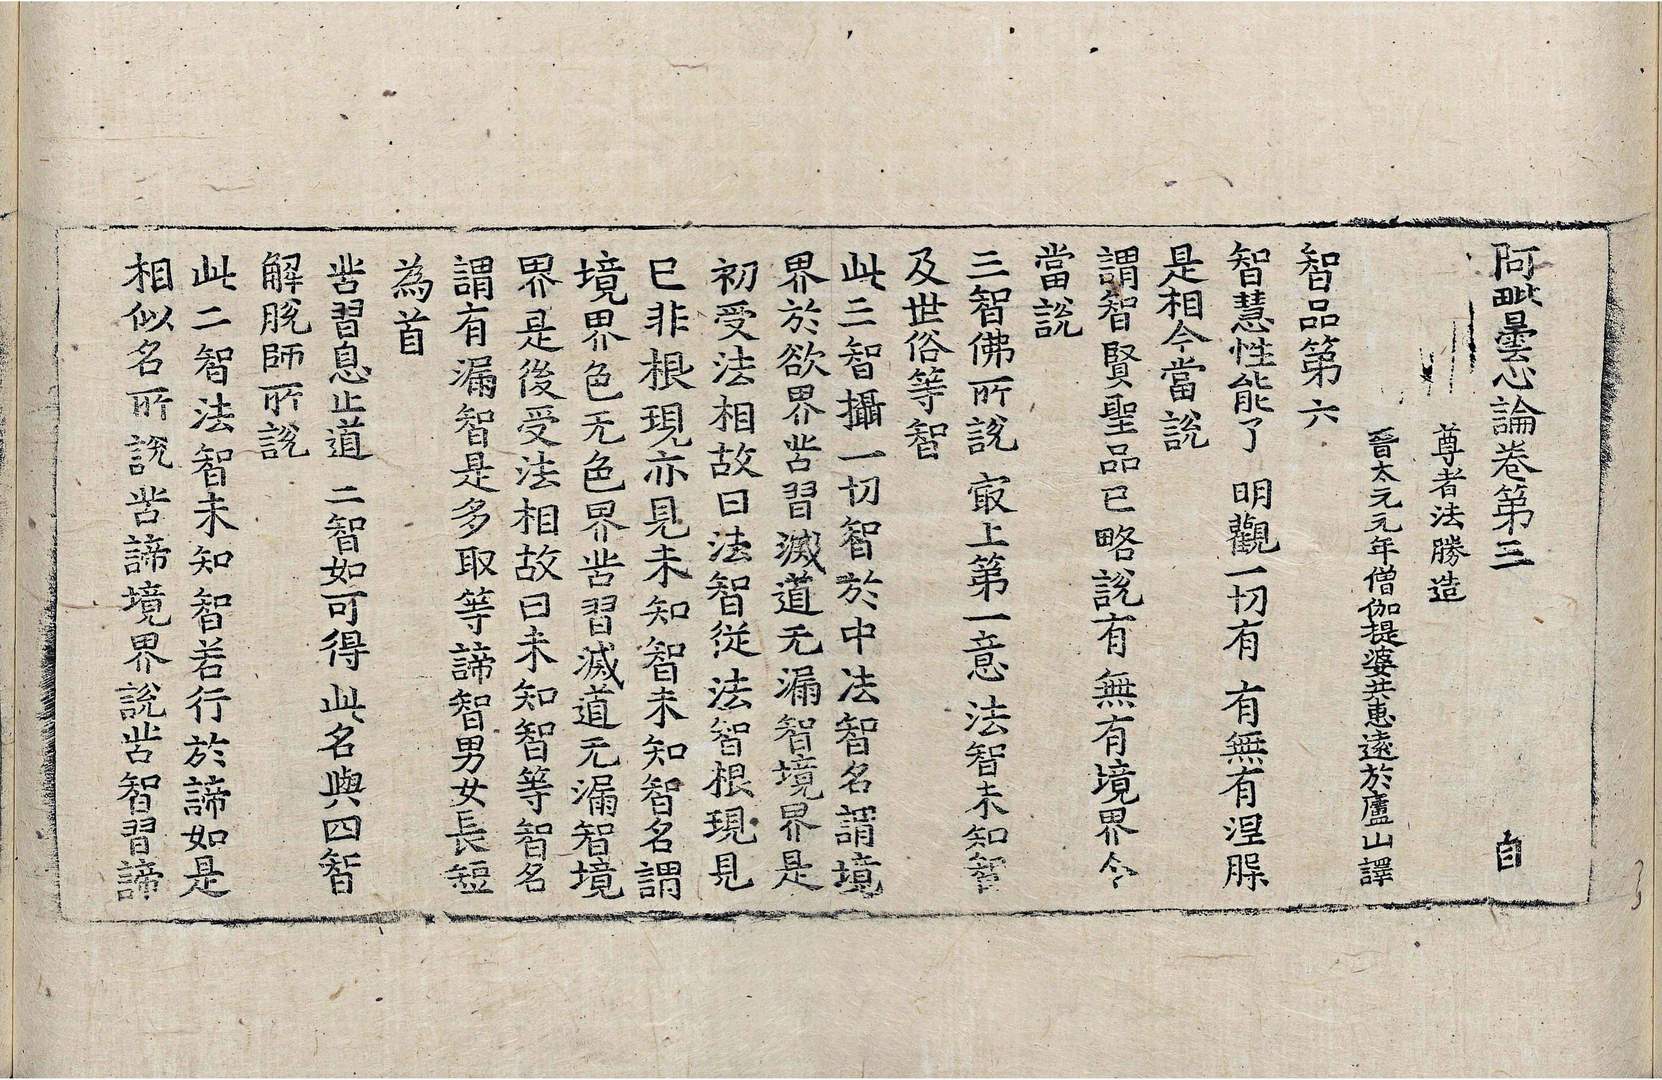 阿毗曇心論卷第三 自
尊者法勝造
晉太元元年僧伽提婆共惠遠於廬山譯
智品第六
智慧性能了 明觀一切有 有無有涅槃
是相今當說
謂智賢聖品已略說有無有境界今
當說
三智佛所說 㝡上第一意 法智未知智
及世俗等智
此三智攝一切智於中法智名謂境
界於欲界苦習滅道无漏智境界是
初受法相故曰法智從法智根現見
已非根現亦見未知智未知智名謂
境界色无色界苦習滅道无漏智境
界是後受法相故曰未知智等智名
謂有漏智是多取等諦智男女長短
為首
苦習息止道 二智如可得 此名與四智
解脫師所說
此二智法智未知智若行於諦如是
相似名所說苦諦境界說苦智習諦